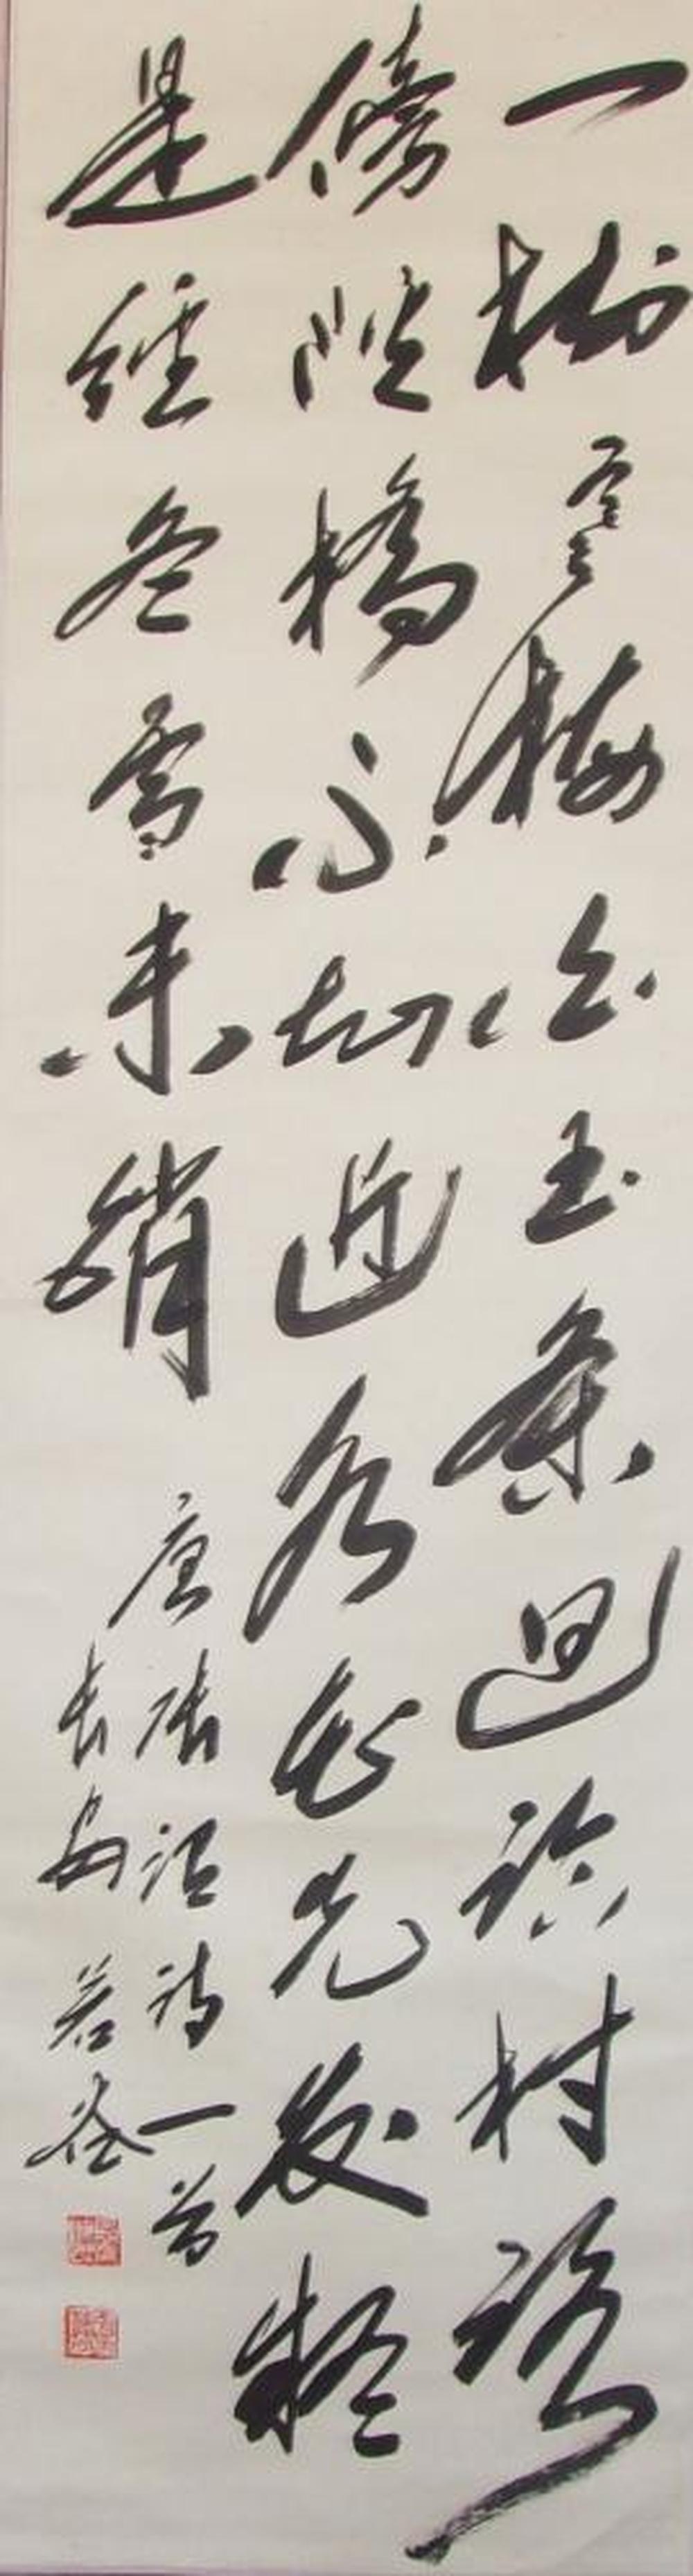 一樹寒梅白玉條迥臨村路
傍溪橋不知近水花先發疑
是經冬雪未銷
唐張謂詩一首
長安若